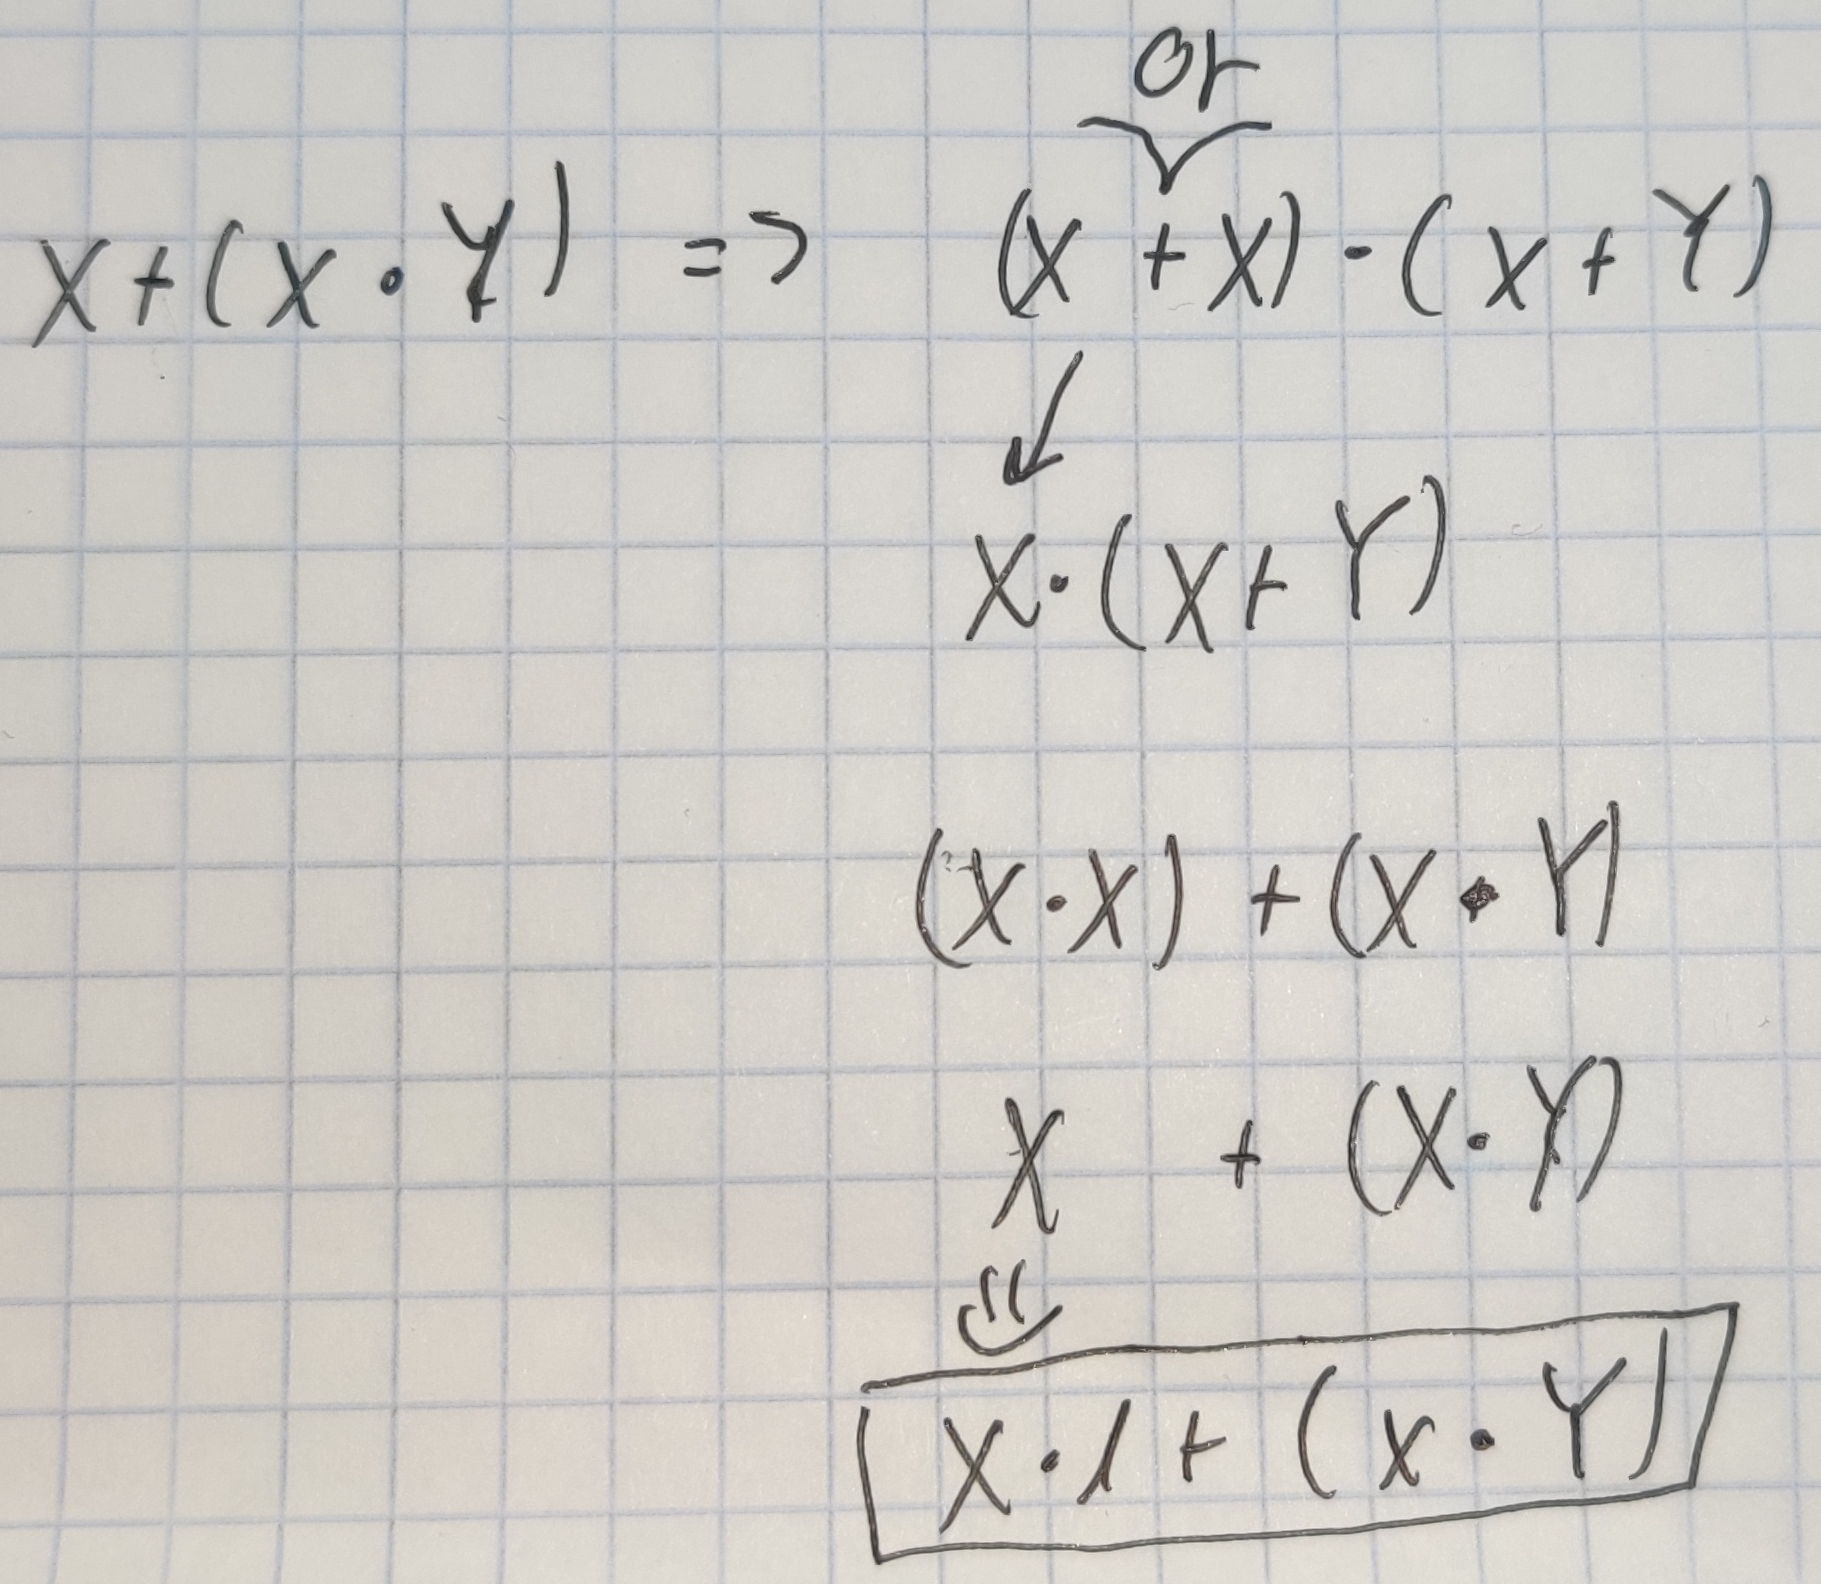 or
X+(X·Y) => (X+X)·(X+Y)
X·(X+Y)
(X·X)+(X·Y)
X + (X·Y)
X·1+(X·Y)